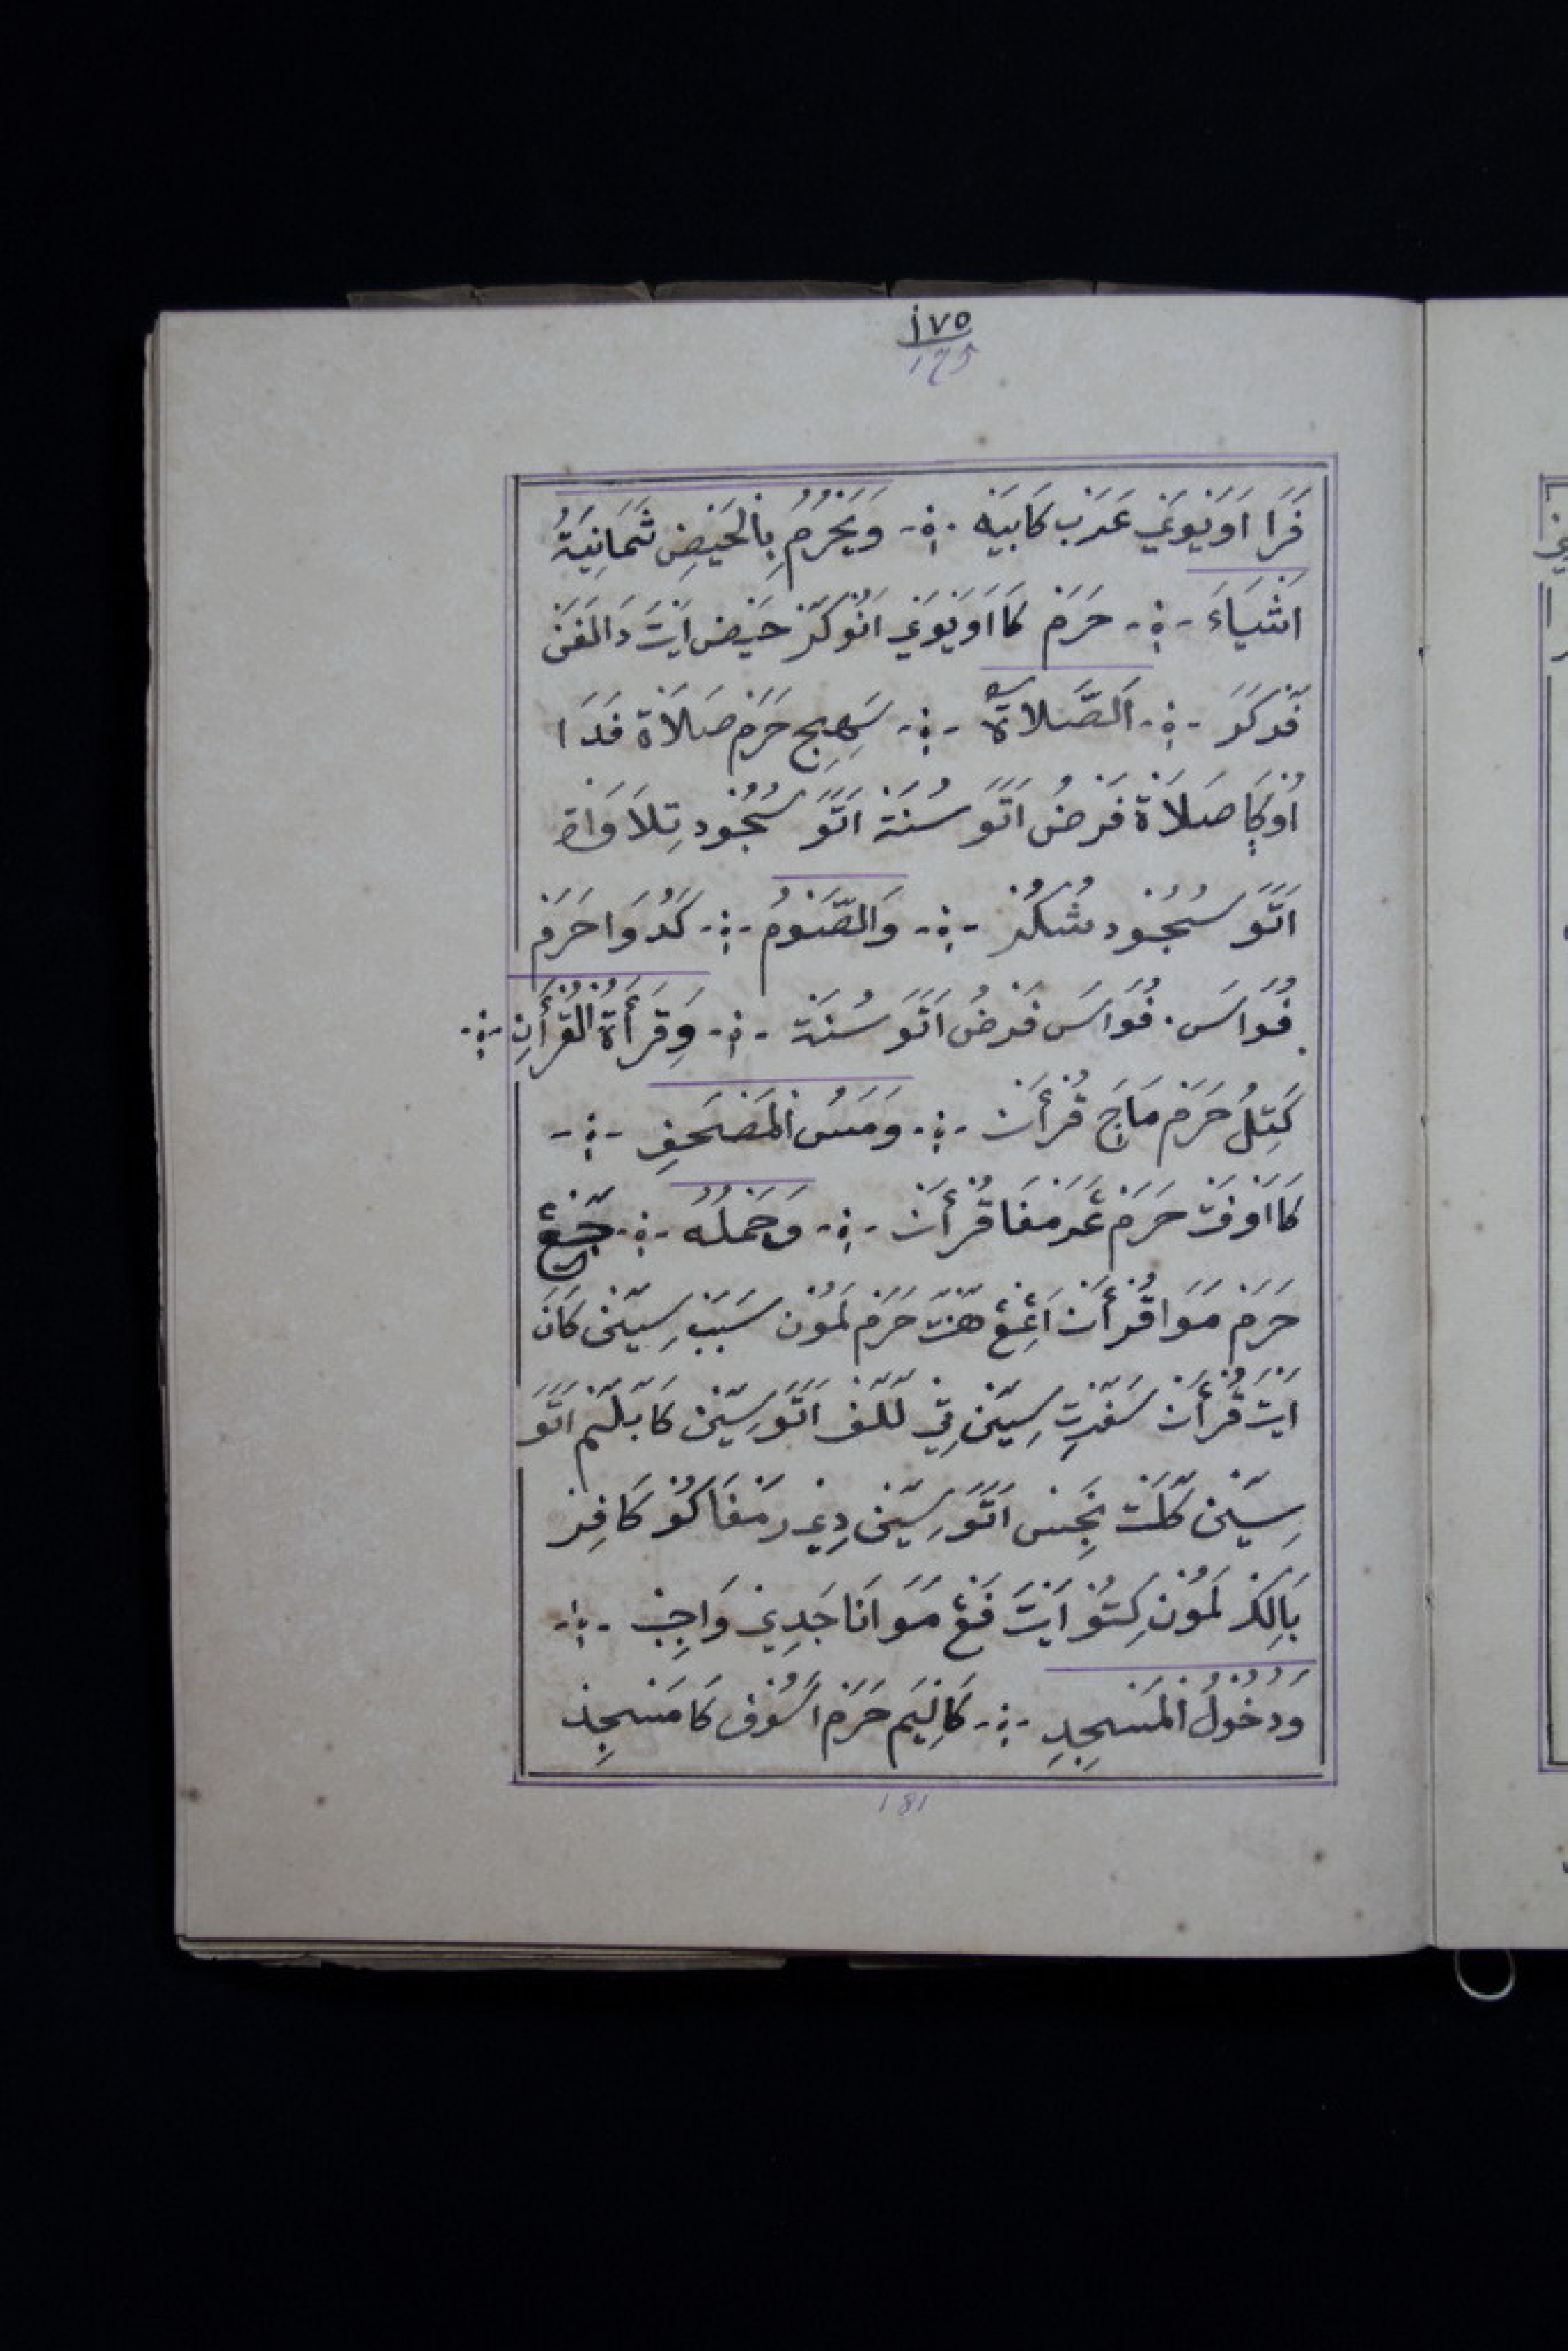 ١٧٥
175
فَرَا اَوَيْوَيْ عَرَبْ كَابَيَه ۞ وَيَحْرُمُ بِالْحَيْضِ ثَمَانِيَةُ
اَشْيَاءَ ۞ حَرَمْ كَااَوَيْوَيْ اَنُوْكَرْ حَيْض اَيْتَ دَالَفَنْ
فَرْكَرَ ۞ اَلصَّلاَةُ ۞ سَهِجِ حَرَمْ صَلاَةْ فَدَا
اُوْكَا صَلاَةْ فَرْضُ اَتَوَ سُنَةْ اَتَوَ سُجُوْد تِلاَوَةْ
اَتَوَ سُجُوْد شُكُرْ ۞ وَالصَّوْمُ ۞ كَدُوَا حَرَمْ
فُوَاسَ. فُوَاسَ فَرْضُ اَتَوَ سُنَةْ ۞ وَقِرَأَةُ الْقُرْأَنِ ۞
كَتِلُ حَرَمْ مَاجَ قُرْأَنْ ۞ وَمَسُّ الْمَصْحَفِ ۞
كَااَوْفَتْ حَرَمْ غَرَمَفَا قُرْأَنْ ۞ وَحَمْلُهُ ۞
حَرَمْ مَوَا قُرْأَنْ اَغِغْ حَرَمْ لَمُوْن سَبَبْ سِيَنْ كَانَ
اَيْتَ قُرْأَنْ سَفَرْتِ سِيَنْ تِيْ لَلَفْ اَتَوَ سِيَنْ كَابَلَمْ اَتَوَ
سِيَنْ كَلَتْ نَجِس اَتَوَ سِيَنْ دِيْ رَمْفَاكُوْ كَافِرْ
بَالِكَرْ لَمُوْن كِتُوْ اَيْتَ فَغْ مَوَانَا جَدِيْ وَاجِبْ ۞
وَدُخُوْلُ الْمَسْجِدِ ۞ كَانِيَمْ حَرَمْ اَسُوْف كَامَسْجِدْ
181